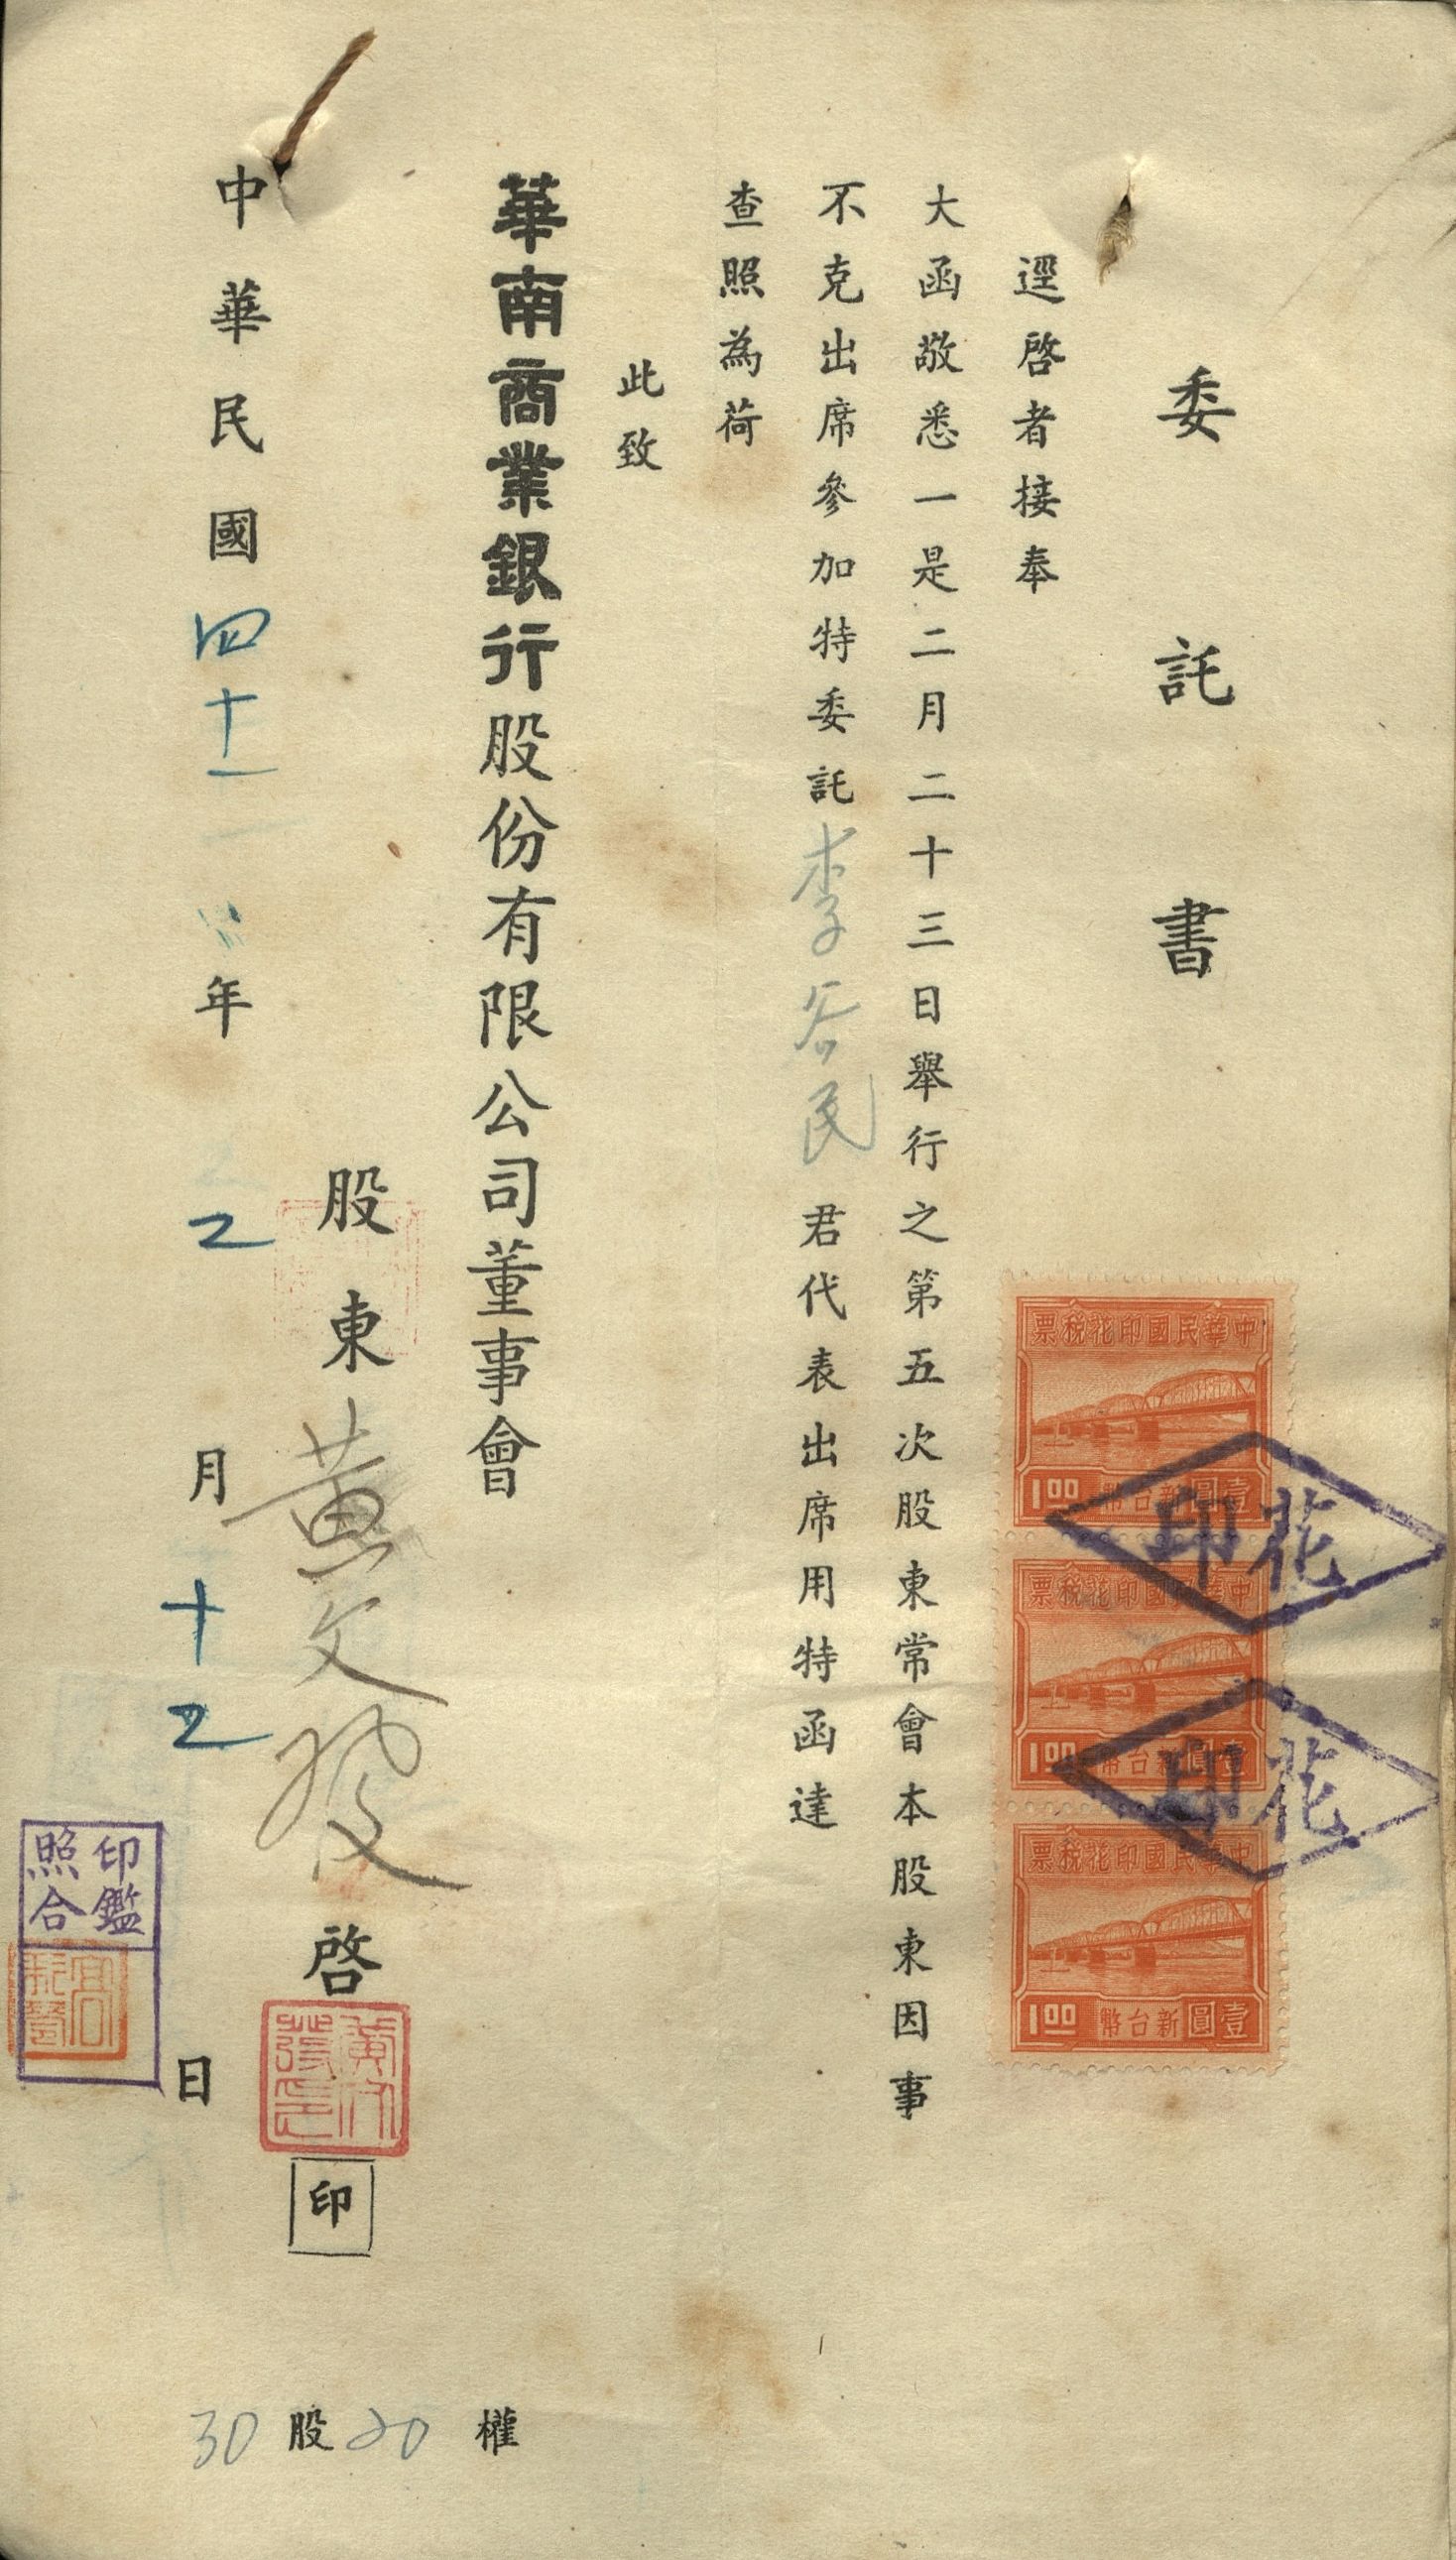 委託書
逕啓者接奉
大函敬悉一是二月二十三日舉行之第五次股東常會本股東因事
不克出席參加特委託李谷民君代表出席用特函達
查照為荷
此致
華南商業銀行股份有限公司董事會
股東黃文發啓
印
中華民國四十一年2月十2日
30股20權
中華民國印花稅票
1.00
新台幣壹圓
中華民國印花稅票
1.00
新台幣壹圓
中華民國印花稅票
1.00
新台幣壹圓
印花
印花
印鑑
照合
黃文
發印